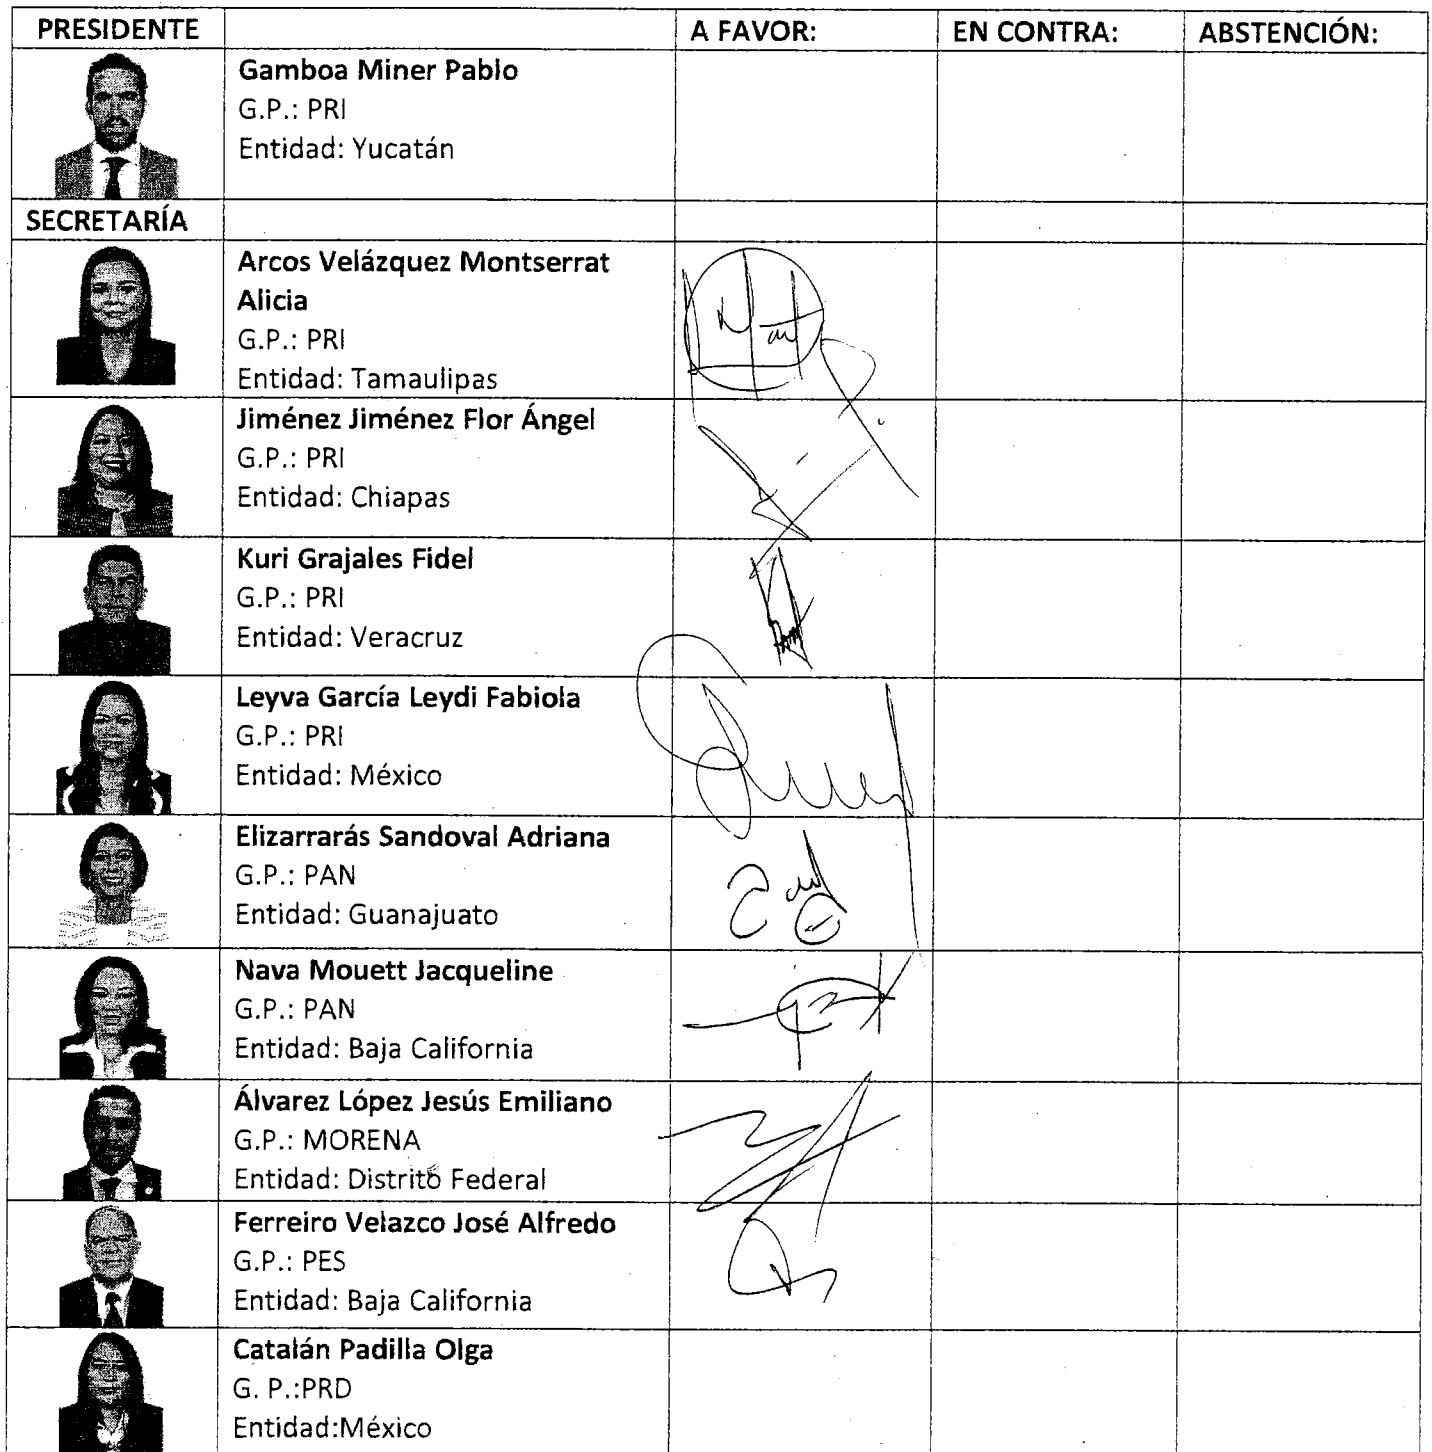 PRESIDENTE A FAVOR: EN CONTRA: ABSTENCIÓN:
Gamboa Miner Pablo
G.P.: PRI
Entidad: Yucatán
SECRETARÍA
Arcos Velázquez Montserrat
Alicia
G.P.: PRI
Entidad: Tamaulipas
Jiménez Jiménez Flor Ángel
G.P.: PRI
Entidad: Chiapas
Kuri Grajales Fidel
G.P.: PRI
Entidad: Veracruz
Leyva García Leydi Fabiola
G.P.: PRI
Entidad: México
Elizarrarás Sandoval Adriana
G.P.: PAN
Entidad: Guanajuato
Nava Mouett Jacqueline
G.P.: PAN
Entidad: Baja California
Álvarez López Jesús Emiliano
G.P.: MORENA
Entidad: Distrito Federal
Ferreiro Velazco José Alfredo
G.P.: PES
Entidad: Baja California
Catalán Padilla Olga
G. P.:PRD
Entidad:México